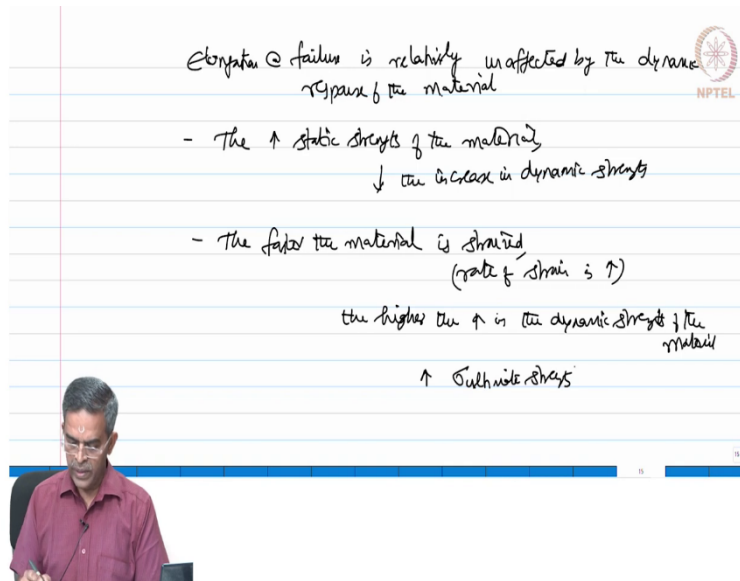 Elongation @ failure is relatively unaffected by the dynamic
response of the material
NPTEL
- The ↑ static strength of the material,
↓ the increase in dynamic strength
- The faster the material is strained,
(rate of strain is ↑)
the higher the ↑ in the dynamic strength of the
material
↑ σultimate strength
15